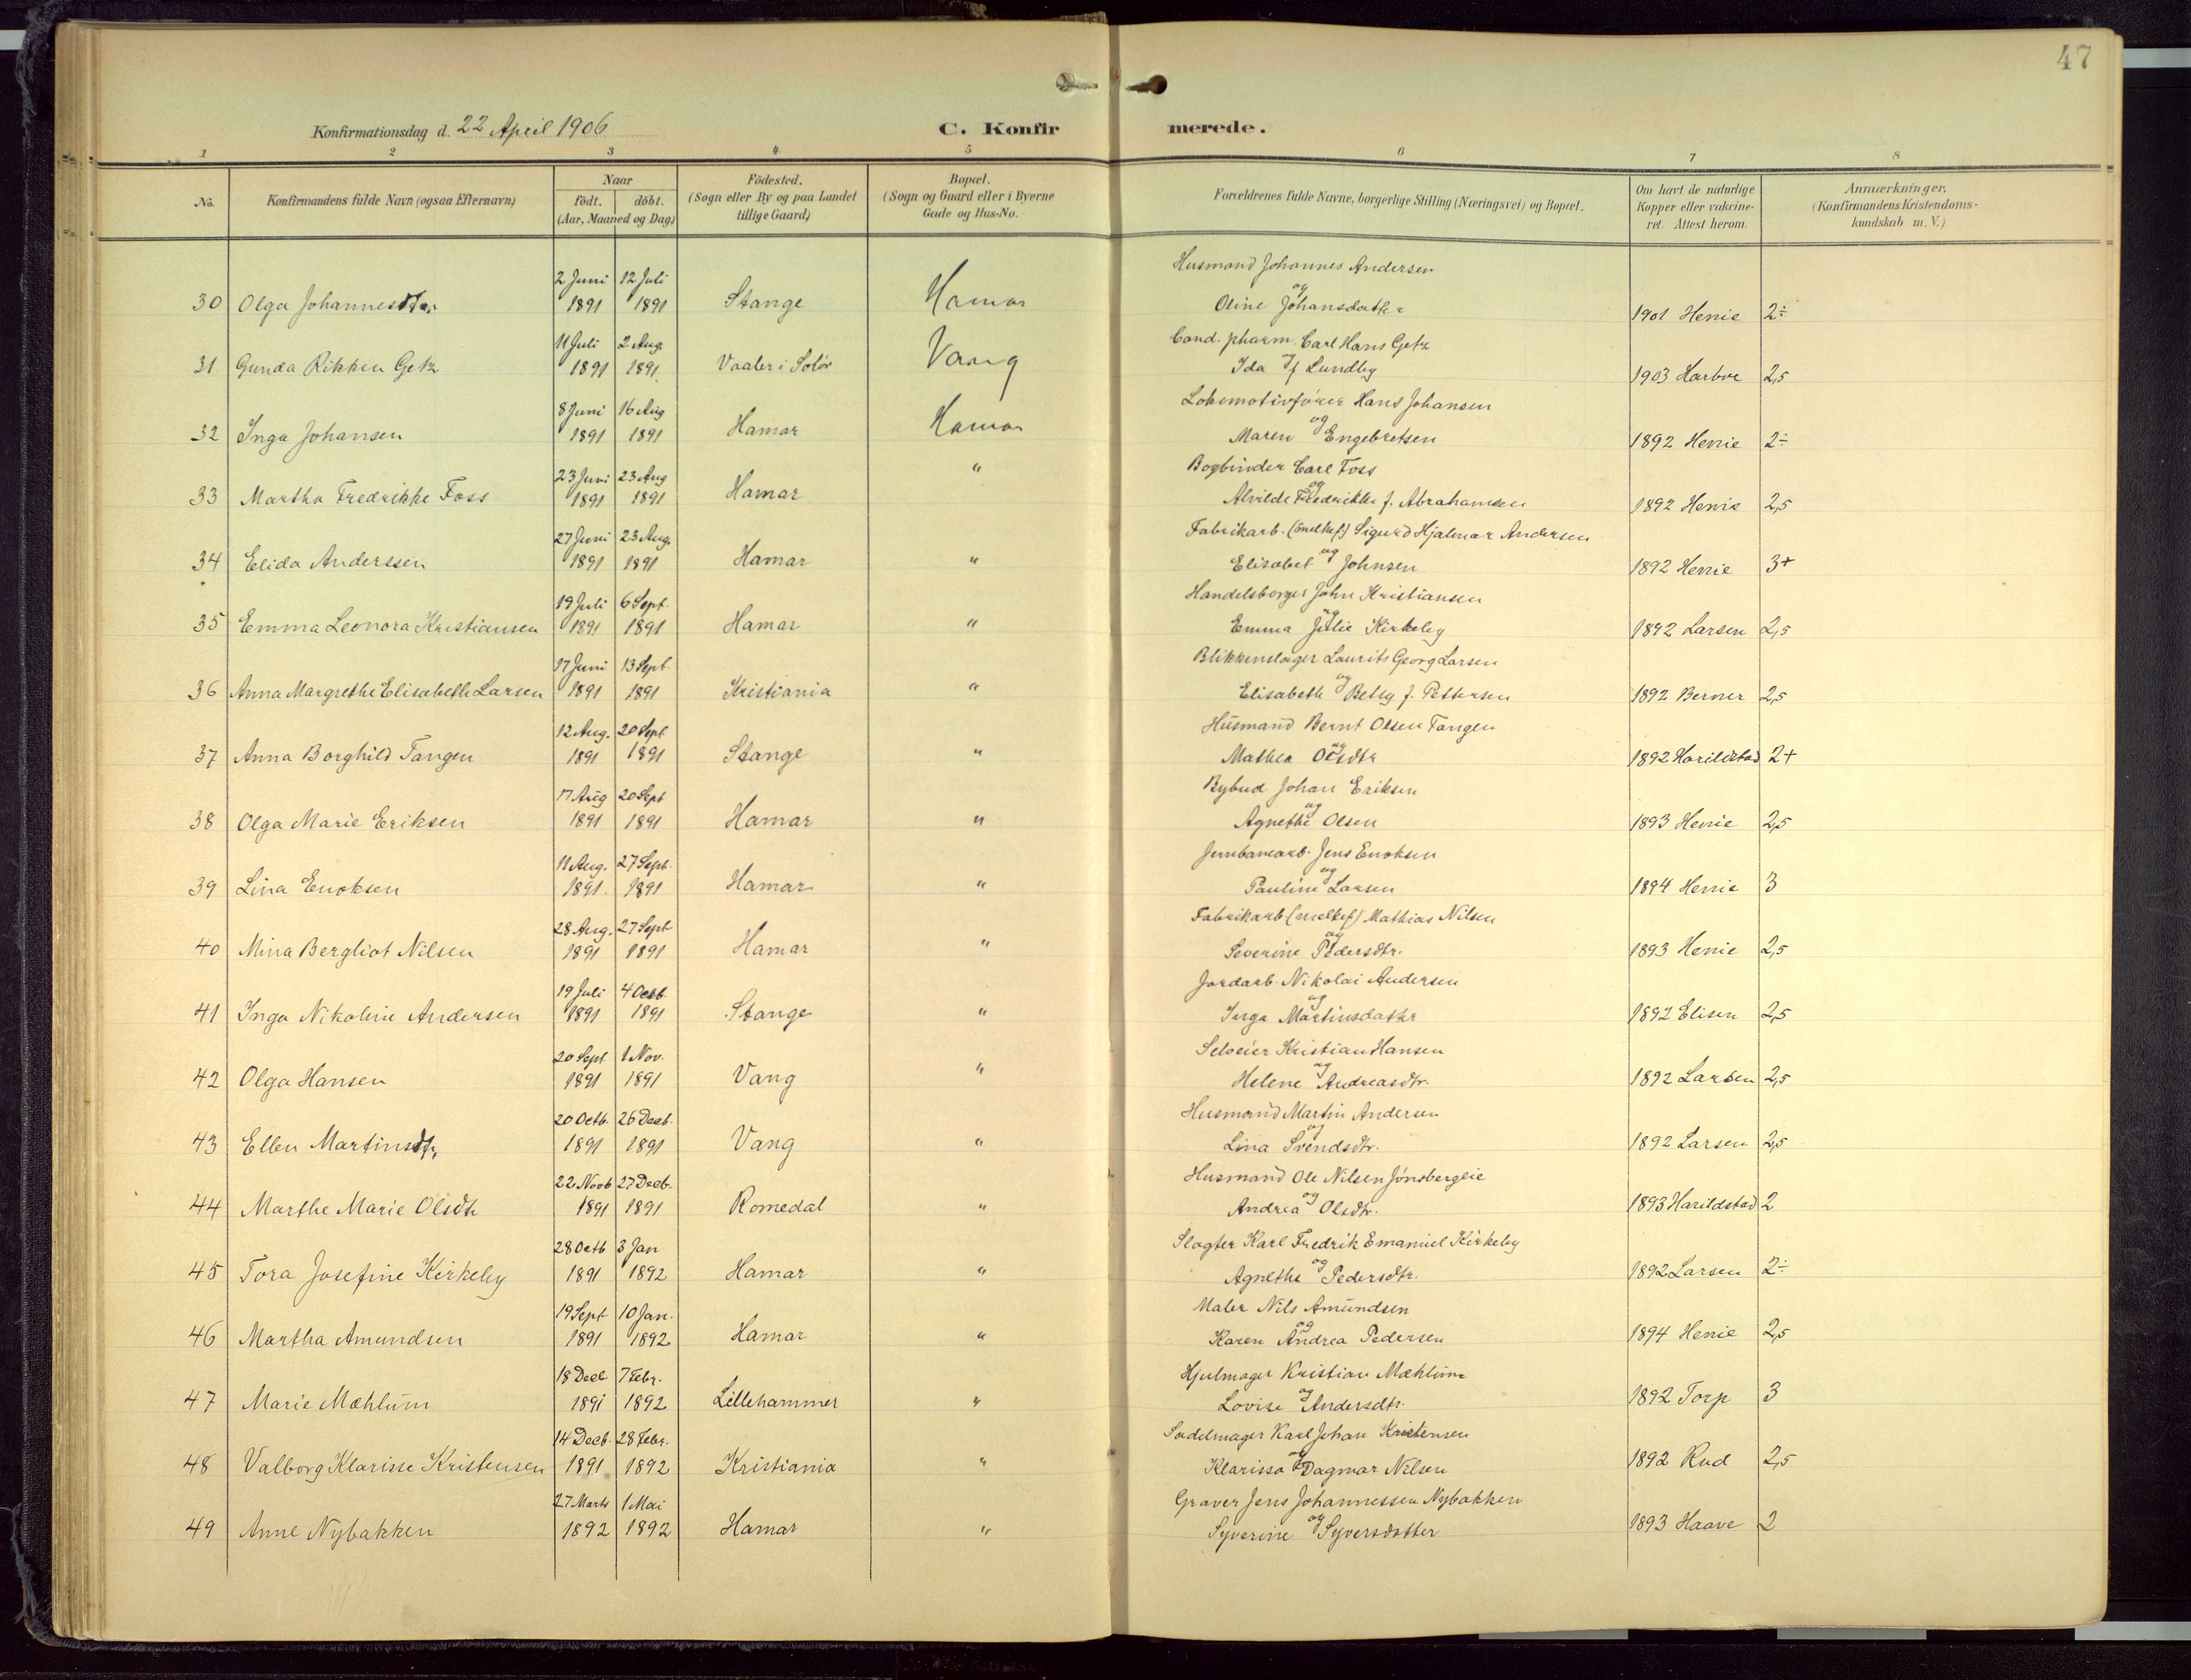 47
Konfirmationsdag d. 22 April 1906
C. Konfirmerede.
1 2 3 4 5 6 7 8
No. Konfirmandens fulde Navn (ogsaa Efternavn) Naar födt. döbt. (Aar, Maaned og Dag) Födested. (Sogn eller By og paa Landet tillige Gaard) Bopæl. (Sogn og Gaard eller i Byerne Gade og Hus-No. Forældrenes fulde Navne, borgerlige Stilling (Næringsvei) og Bopæl. Om havt de naturlige Kopper eller vakcineret. Attest herom. Anmærkninger. (Konfirmandens Kristendomskundskab m. V.)
2 Juni 12 Juli Husmand Johannes Andersen
30 Olga Johannesdtr. 1891 1891 Stange Hamar og Oline Johansdatter 1901 Henie 2÷
11 Juli 2 Aug. Cand. pharm. Carl Hans Getz
31 Gunda Rikken Getz 1891 1891 Vaaler i Solör Vang Ida f. Lundby 1903 Harboe 2,5
8 Juni 16 Aug Lokomotivfører Hans Johansen
32 Inga Johansen 1891 1891 Hamar Hamar og Maren Engebretsen 1892 Henie 2÷
23 Juni 23 Aug Bogbinder Carl Foss
33 Martha Fredrikke Foss 1891 1891 Hamar " og Alvilde Fredrikke f. Abrahamsen 1892 Henie 2,5
27 Juni 23 Aug. Fabrikarb. (melkef) Sigurd Hjalmar Andersen
34 Elida Anderssen 1891 1891 Hamar " og Elisabet Johnsen 1892 Henie 3+
19 Juli 6 Sept. Handelsborger John Kristiansen
35 Emma Leonora Kristiansen 1891 1891 Hamar " og Emma Julie Kirkeby 1892 Larsen 2,5
17 Juni 13 Sept. Blikkenslager Laurits Georg Larsen
36 Anna Margrethe Elisabeth Larsen 1891 1891 Kristiania " og Elisabeth Betsy f. Pettersen 1892 Berner 2,5
12 Aug. 20 Sept Husmand Bernt Olsen Tangen
37 Anna Borghild Tangen 1891 1891 Stange " og Mathea Olsdtr 1892 Harildstad 2+
17 Aug 20 Sept Bybud Johan Eriksen
38 Olga Marie Eriksen 1891 1891 Hamar " og Agnethe Olsen 1893 Henie 2,5
11 Aug. 27 Sept. Jernbanearb. Jens Enoksen
39 Lina Enoksen 1891. 1891 Hamar " og Pauline Larsen 1894 Henie 3
28 Aug. 27 Sept Fabrikarb (melkef) Mathias Nilsen
40 Mina Bergliot Nilsen 1891 1891 Hamar " og Severine Pedersdtr. 1893 Henie 2,5
19 Juli 4 Octb. Jordarb. Nikolai Andersen
41 Inga Nikoline Andersen 1891 1891 Stange " og Inga Martinsdatter 1892 Elisen 2,5
20 Sept 1 Nov. Selveier Kristian Hansen
42 Olga Hansen 1891 1891 Vang " og Helene Andreasdtr. 1892 Larsen 2,5
20 Octb. 26 Decb. Husmand Martin Andersen
43 Ellen Martinsdtr. 1891 1891 Vang " og Lina Svendsdtr. 1892 Larsen 2,5
22 Novb 27 Decb. Husmand Ole Nilsen Jönsbergeie
44 Marthe Marie Olsdtr 1891 1891 Romedal " og Andrea Olsdtr. 1893 Harildstad 2
28 Octb 3 Jan Slagter Karl Fredrik Emanuel Kirkeby
45 Tora Josefine Kirkeby 1891 1892 Hamar " og Agnethe Pedersdtr. 1892 Larsen 2÷
19 Sept 10 Jan. Maler Nils Amundsen
46 Martha Amundsen 1891 1892 Hamar " og Karen Andrea Pedersen 1894 Henie 2,5
18 Decb 7 Febr. Hjulmager Kristian Mæhlum
47 Marie Mæhlum 1891 1892 Lillehammer " og Lovise Andersdtr. 1892 Torp 3
14 Decb. 28 Febr. Sadelmager Karl Johan Kristensen
48 Valborg Klarisse Kristensen 1891 1892 Kristiania " og Klarissa Dagmar Nilsen 1892 Rud 2,5
27 Marts 1 Mai Graver Jens Johannessen Nybakken
49 Anne Nybakken 1892 1892 Hamar " og Syverine Syversdatter 1893 Haave 2